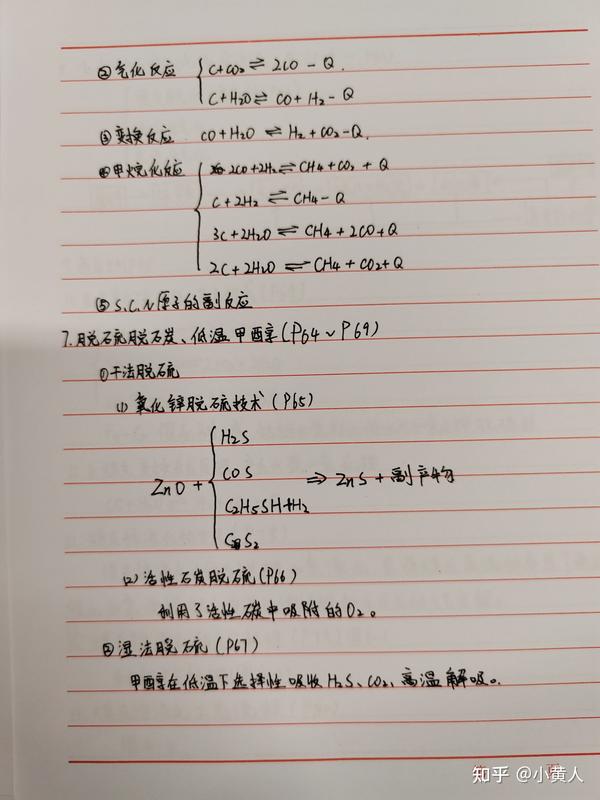 ②气化反应 { C+CO2⇌2CO-Q.
C+H2O⇌CO+H2-Q
③变换反应 CO+H2O⇌H2+CO2-Q.
④甲烷化反应 { 2CO+2H2⇌CH4+CO2+Q
C+2H2⇌CH4-Q
3C+2H2O⇌CH4+2CO+Q
2C+2H2O⇌CH4+CO2+Q
⑤S.C.N原子的副反应
7.脱硫脱石炭、低温甲酉享(P64~P69)
①干法脱硫
(1)氧化锌脱硫技术(P65)
ZnO+ { H2S
COS
C2H5SH+H2
CS2
⇒ZnS+副产物
(2)活性石炭脱硫(P66)
利用了活性碳中吸附的O2。
②湿法脱硫(P67)
甲醇在低温下选择性吸收H2S、CO2、高温解吸。
知乎 @小黄人